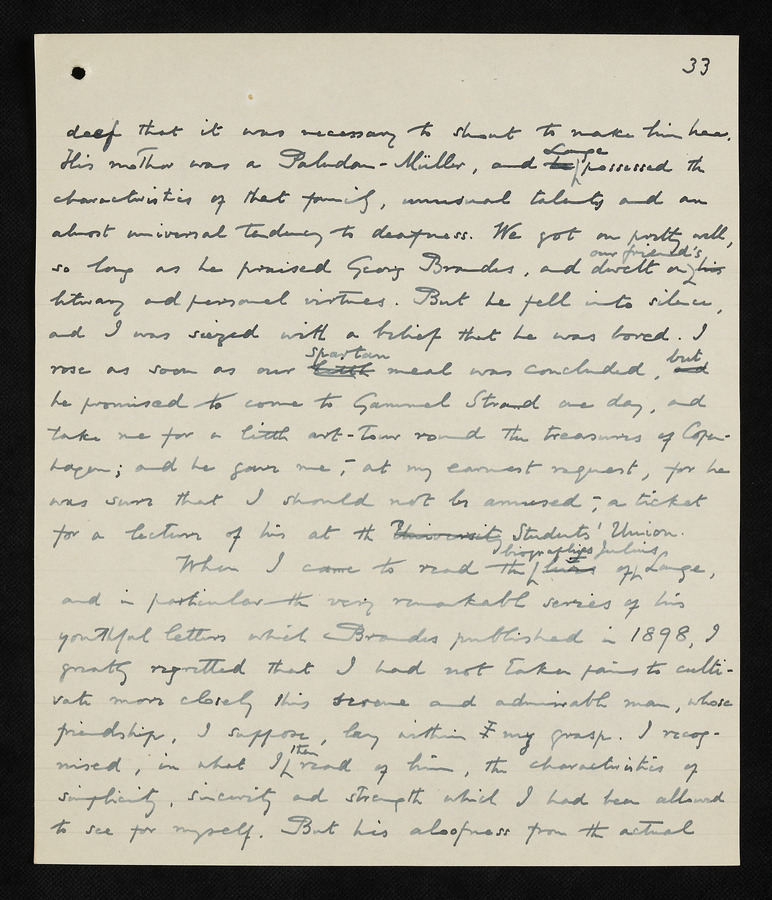 33
deef that it was necessary to shout to make him hear.
His mother was a Paludan-Müller, and he Lange possessed the
characteristics of that family, unusual talents and an
almost universal tendency to deafness. We got on pretty well,
so long as he praised Georg Brandes, and dwelt on his our friend's
literary and personal virtues. But he fell into silence,
and I was siezed with a belief that he was bored. I
rose as soon as our little spartan meal was concluded, and but
he promised to come to Gammel Strand one day, and
take me for a little art-tour round the treasures of Copen-
hagen; and he gave me, - at my earnest request, for he
was sure that I should not be amused, - a ticket
for a lecture of his at the University Students' Union.
When I came to read the lives biographies of Julius Lange,
and in particular the very remarkable series of his
youthful letters which Brandes published in 1898, I
greatly regretted that I had not taken pains to culti-
vate more closely this serene and admirable man, whose
friendship, I suppose, lay within my grasp. I recog-
nised, in what I then read of him, the characteristics of
simplicity, sincerity and strength which I had been allowed
to see for myself. But his aloofness from the actual